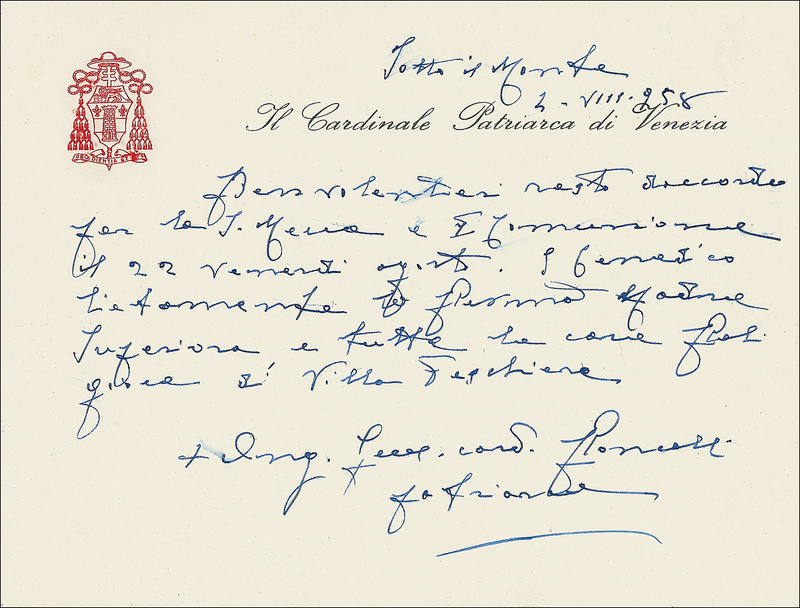 Sotto il Monte
2 - VIII - 958
Il Cardinale Patriarca di Venezia
OBOEDIENTIA ET
Ben volentieri resto d'accordo
per la S. Messa e I Comunione
il 22 venerdì agosto. E benedico
lietamente la Rev.ma Madre
Superiora e tutte le care Reli
giose di Villa Peschiera
+ Ang. Gius. card. Roncalli
patriarca